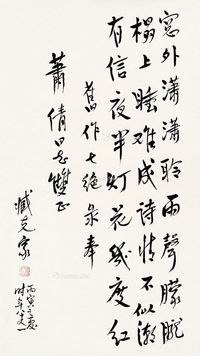 窗外瀟瀟聆雨聲朦朧
榻上睡难成诗情不似潮
有信夜半灯花幾度红
舊作七绝录奉
蕭倩同志雅正
臧克家
丙寅之夏
时年八十又一